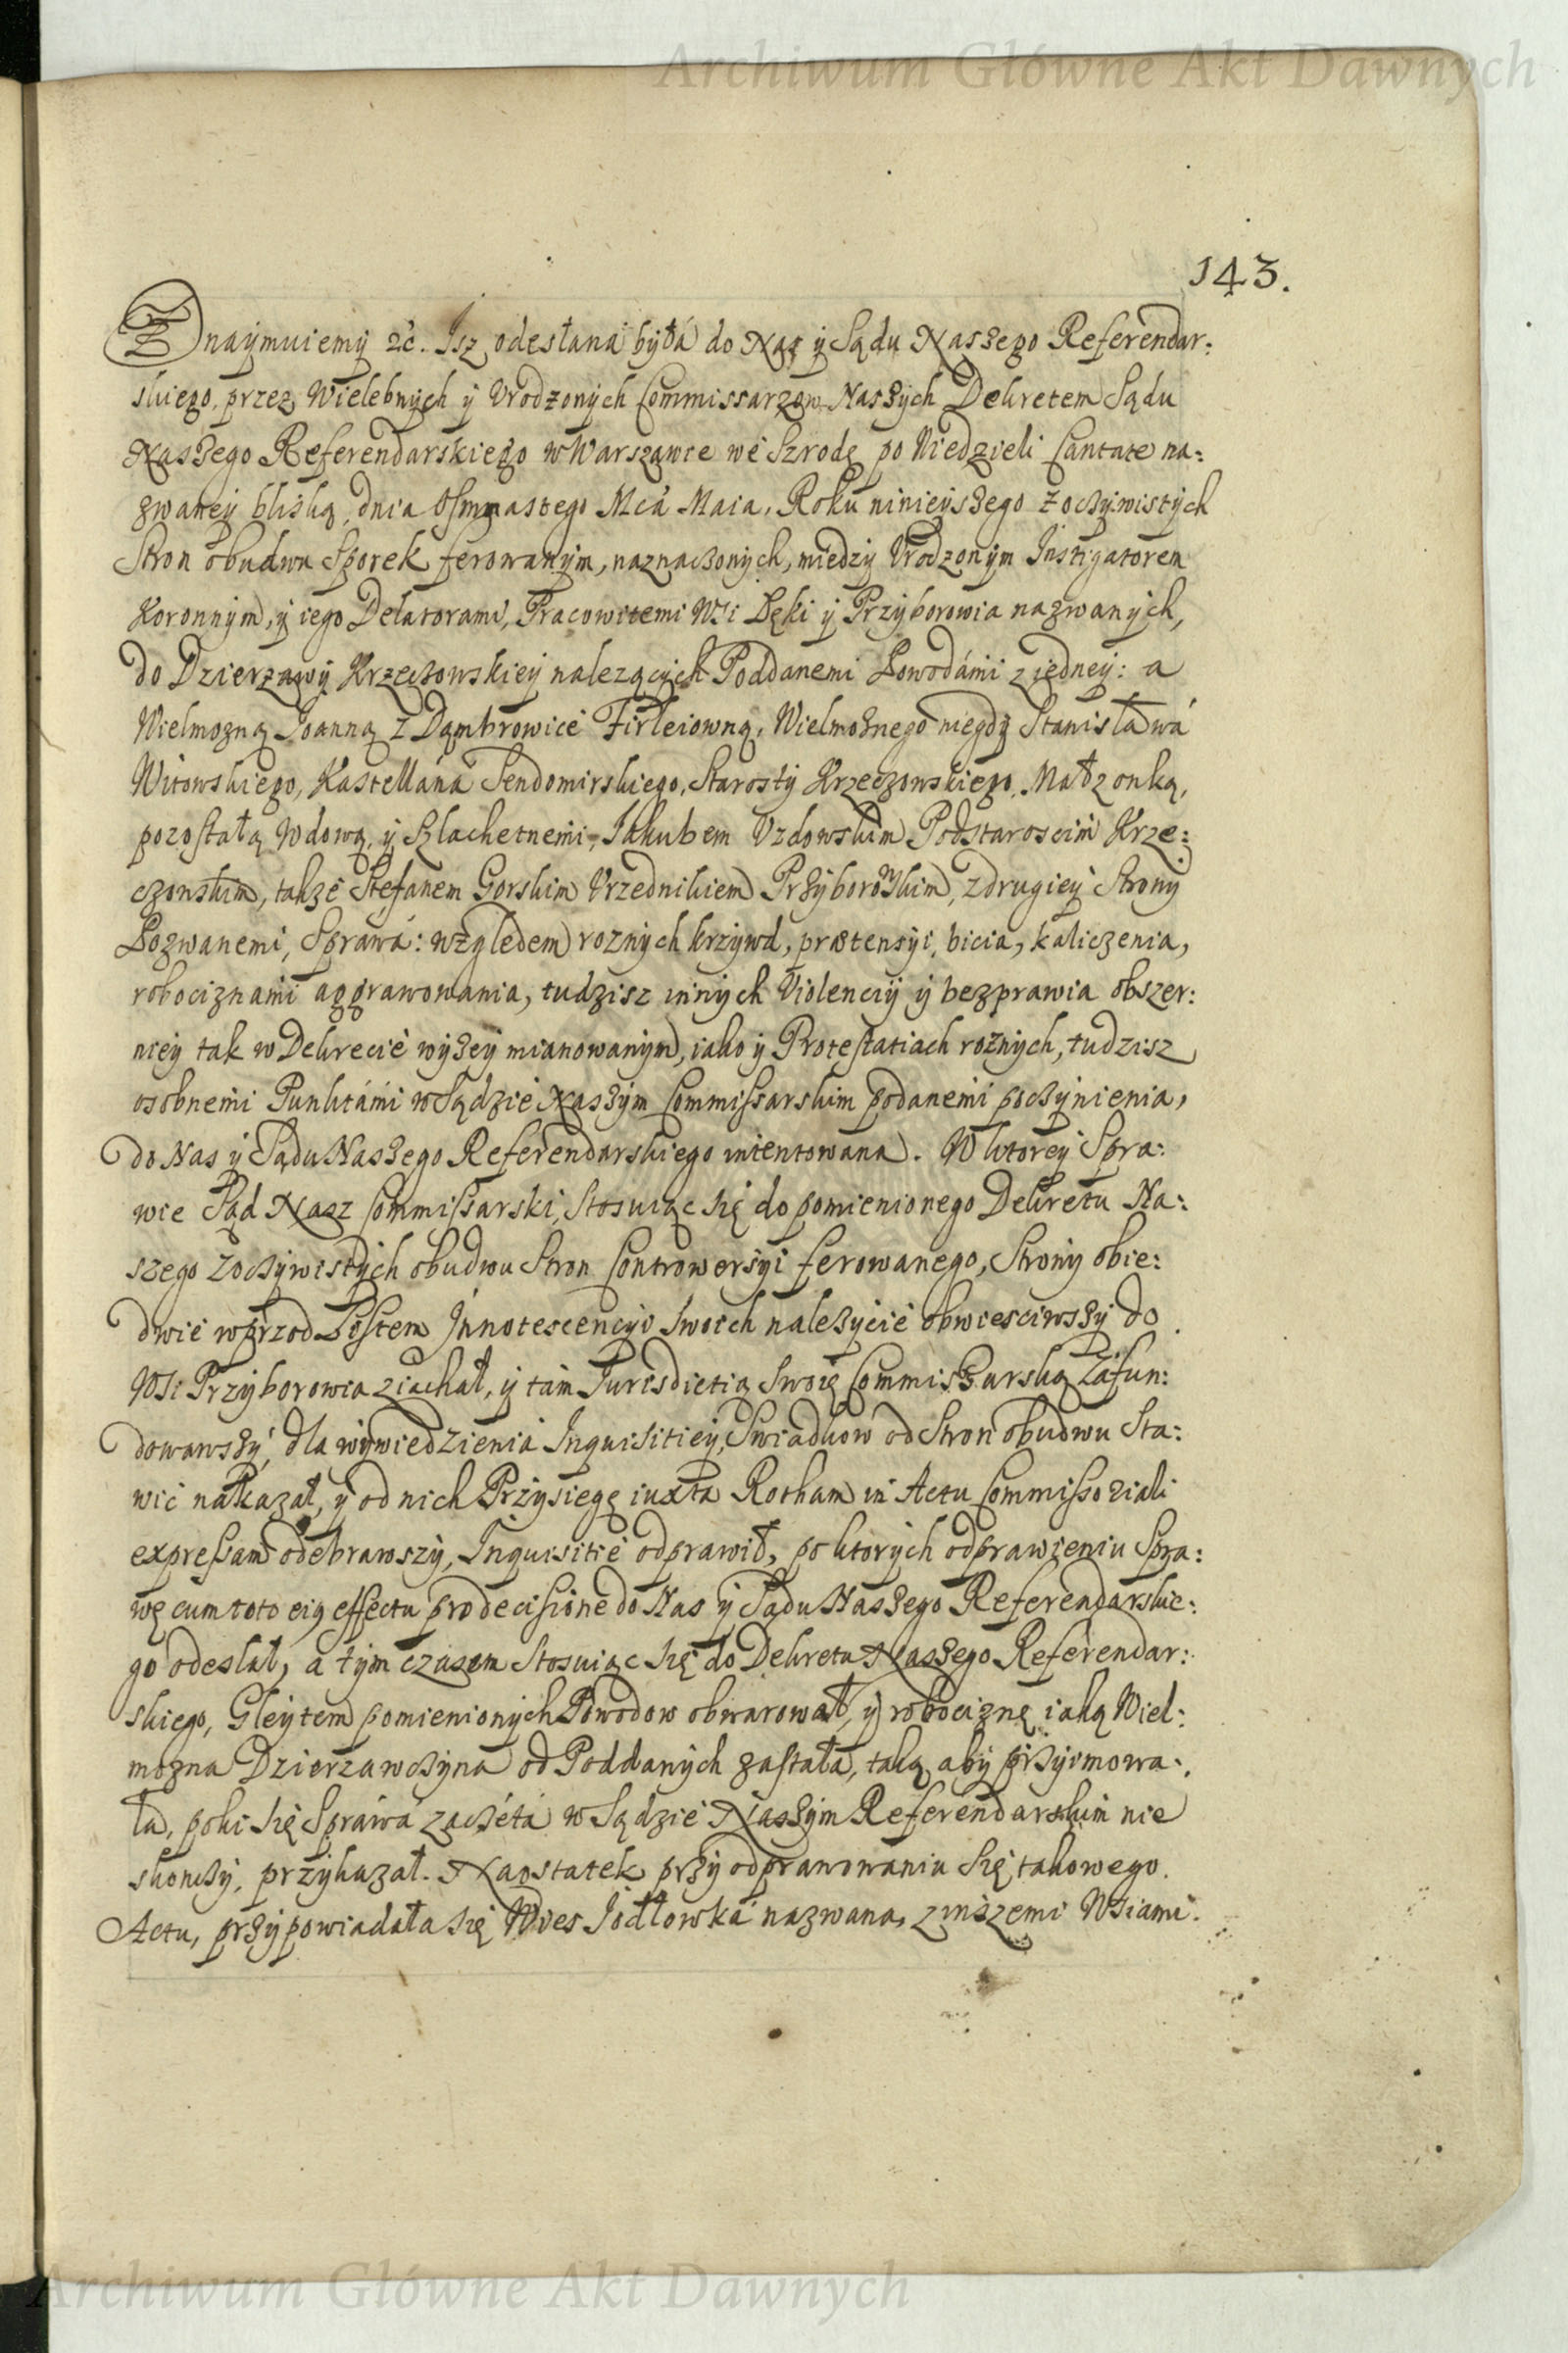 Archiwum Główne Akt Dawnych
143.
Znaÿmuiemÿ &c. Isz odesłana bÿłá do Nas ÿ Sądu Naszego Referendar:
skiego, przez Wielebnÿch ÿ Vrodzonÿch Commissarzow Naszÿch Dekretem Sądu
Naszego Referendarskiego w Warszawie we Szrodę po Niedzieli Cantate na:
zwaneÿ blizką, dnia Osmnastego Mcá Maia, Roku ninieÿszego z oczÿwistÿch
Stron obudwu Sporek ferowanÿm, naznaczonÿch, miedzÿ Vrodzonÿm Instigatorem
Koronnÿm, ÿ iego Delatorami, Pracowitemi WSi Łęki ÿ Przÿborowia nazwanÿch,
do Dzierzawÿ Krzeczowskieÿ nalezącÿch Poddanemi Powodámi z iedneÿ: a
Wielmozną Joanną z Dąmbrowice Firleiowną, Wielmoznego niegdÿ Stanisławá
Witowskiego, Kastellána Sendomirskiego, Starostÿ Krzeczowskiego, Małzonką,
pozostałą Wdową, ÿ Szlachetnemi, Jakubem Vzdowskim Podstaroscim Krze:
czowskim, także Stefanem Gorskim Vrzednikiem Przÿborowskim, z drugieÿ Stronÿ
Pozwanemi, Sprawá: względem roznÿch krzÿwd, prætensÿi, bicia, kaliczenia,
robociznami aggrawowania, tudzisz innÿch Violenciÿ ÿ bezprawia obszer:
nieÿ tak w Dekrecie wÿzeÿ mianowanÿm, iako ÿ Protestatiach roznÿch, tudzisz
osobnemi Punktámi w Sądzie Naszÿm Commissarskim podanemi poczÿnienia,
do Nas ÿ Sądu Naszego Referendarskiego intentowana. W ktoreÿ Spra:
wie Sąd Nasz Commissarski, Stosuiąc Się do pomienionego Dekretu Na:
szego z oczÿwistÿch obudwu Stron Controwersÿi ferowanego, Stronÿ obie:
dwie wprzod Listem Innotescencÿi Swoich nalezÿcie obwiesciwszÿ do
WSi Przÿborowia ziachał, ÿ tam Jurisdictią Swoię Commissarską zafun:
dowawszÿ, dla wÿwiedzienia Inquisitieÿ, Swiadkow od Stron obudwu Sta:
wić nakazał, ÿ od nich Przÿsięgę iuxta Rotham in Actu Commissoriali
expressam odebrawszÿ, Inquisitie odprawił, po ktorÿch odprawieniu Spra:
wę cum toto eiq effectu pro decisione do Nas ÿ Sądu Naszego Referendarskie:
go odesłał, a tÿm czasem Stosuiąc Się do Dekretu Naszego Referendar:
skiego, Gleÿtem pomienionÿch Powodow obwarował, ÿ robociznę iaką Wiel:
mozna Dzierzawczÿna od Poddanÿch zastała, taką abÿ przÿimowa:
ła, poki Się Sprawá zaczétá w Sądzie Naszÿm Referendarskim nie
skonczÿ, przÿkazał. Naostatek przÿ odprawowaniu Się takowego
Actu, przÿpowiadała Się Wies Jodłowká nazwana, z inszemi WSiami
Archiwum Główne Akt Dawnych